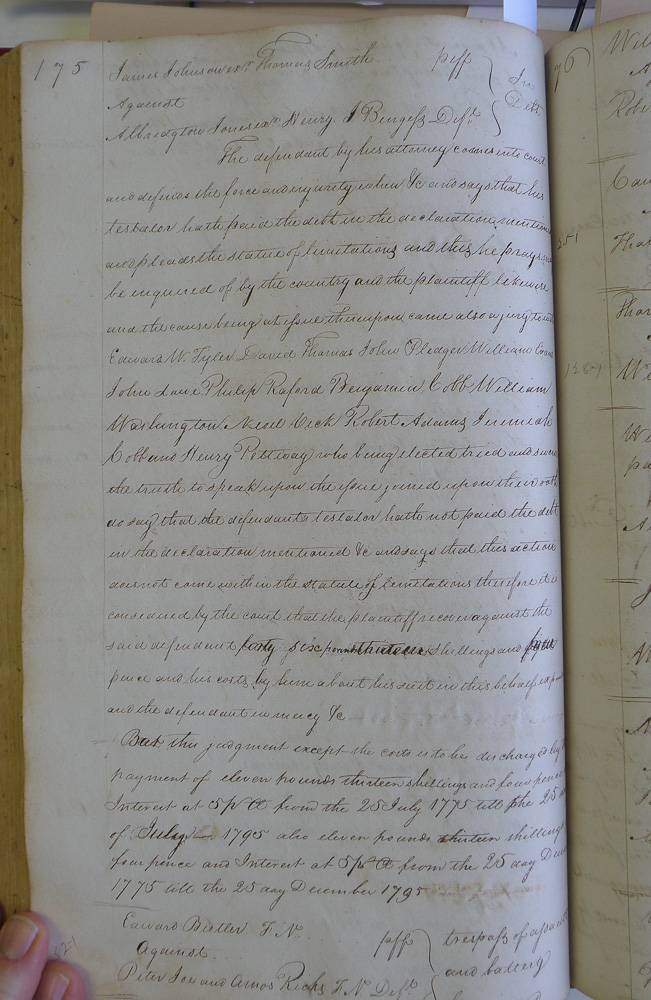 175
James Johnson exr Thomas Smith plff In
Against Debt
Albridgton Jones exr Henry J Burgess Deft
The defendant by his attorney comes into court
and defends the force and injurity when &c and says that his
testator hath paid the debt in the declaration mention
and pleads the statue of limitations and this he prays
be inquired of by the country and the plaintiff likewise
and the cause being at issue thereupon came also a jury to wit
Edward W. Tyler David Thomas John Pledger William
John Lane Philip Raford Benjamin Cobb William
Washington Need Vick Robert Adams Jeremiah
Cobb and Henry Pettway who being elected tried and sworn
the truth to speak upon the issue joined upon their oath
do say that the defendants testator hath not paid the debt
in the declaration mentioned &c and says that this action
does not come within the statute of limitations therefore it is
considered by the court that the plaintiff recover against the
said defendant forty six pounds thirteen shillings and
pence and his costs by him about his suit in this behalf
and the defendant in mercy &c
But this judgment except the costs is to be discharged by
payment of eleven pounds thirteen shillings and four pence
Interest at 5 pr Ct from the 25 July 1775 till the 25
of July 1795 also eleven pounds thirteen shilling
four pence and Interest at 5 pr Ct from the 25 day Dec
1775 till the 25 day December 1795
Edward Butler F. No. plff trespass of assault
Against and battery
Peter Joe and Amos Ricks F. N Deft
76
251